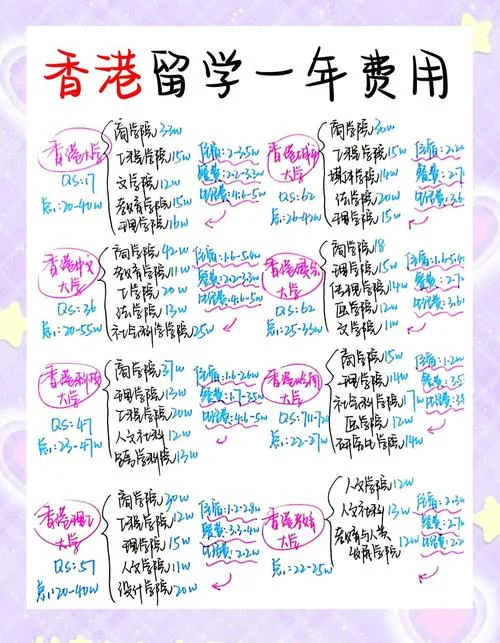 香港留学一年费用
香港大学
QS:17
总:20-40w
商学院 33w
工程学院 15w
文学院 12w
教育学院 15w
理学院 16w
住宿:2-3.5w
餐费:2.2-3.3w
生活费:4.6-5w
香港城市大学
QS:62
总:26-42w
商学院 30w
工程学院 15w
媒体学院 14w
法学院 20w
理学院 15w
住宿:2.2
餐费:2-7
生活费:3.6
香港中文大学
QS:36
总:20-55w
商学院 42w
教育学院 11w
工学院 20w
法学院 13w
社会科学学院 25w
住宿:1.6-5.4w
餐费:2.2-3.3w
生活费:4.6-5w
香港浸会大学
QS:62
总:25-33w
商学院 18
理学院 15w
传理学院 14w
医学院 12w
文学院 11w
住宿:1.6-5.4
餐费:2-7
生活费:3.6
香港科技大学
QS:47
总:23-47w
商学院 37w
理学院 13w
工程学院 20w
人文社科 12w
跨学科院 13w
住宿:1.6-2.6w
餐费:1.7-3.5w
生活费:4.6-5w
香港岭南大学
QS:711-72
总:22-27w
商学院 15w
理学院 14w
社会科学院 17w
医学院 12w
研究生学院 14w
住宿:1.2
餐费:3.5
生活费:3
香港理工大学
QS:57
总:20-40w
商学院 30w
工程学院 12w
理学院 15w
人文学院 11w
设计学院 20w
住宿:1.2-2.8w
餐费:3.3-4w
生活费:2-2.2w
香港教育大学
总:22-25w
人文学院 12w
人文社科 13w
教育与人类发展学院 12w
住宿:2-3
餐费:2-7
生活费:2-2